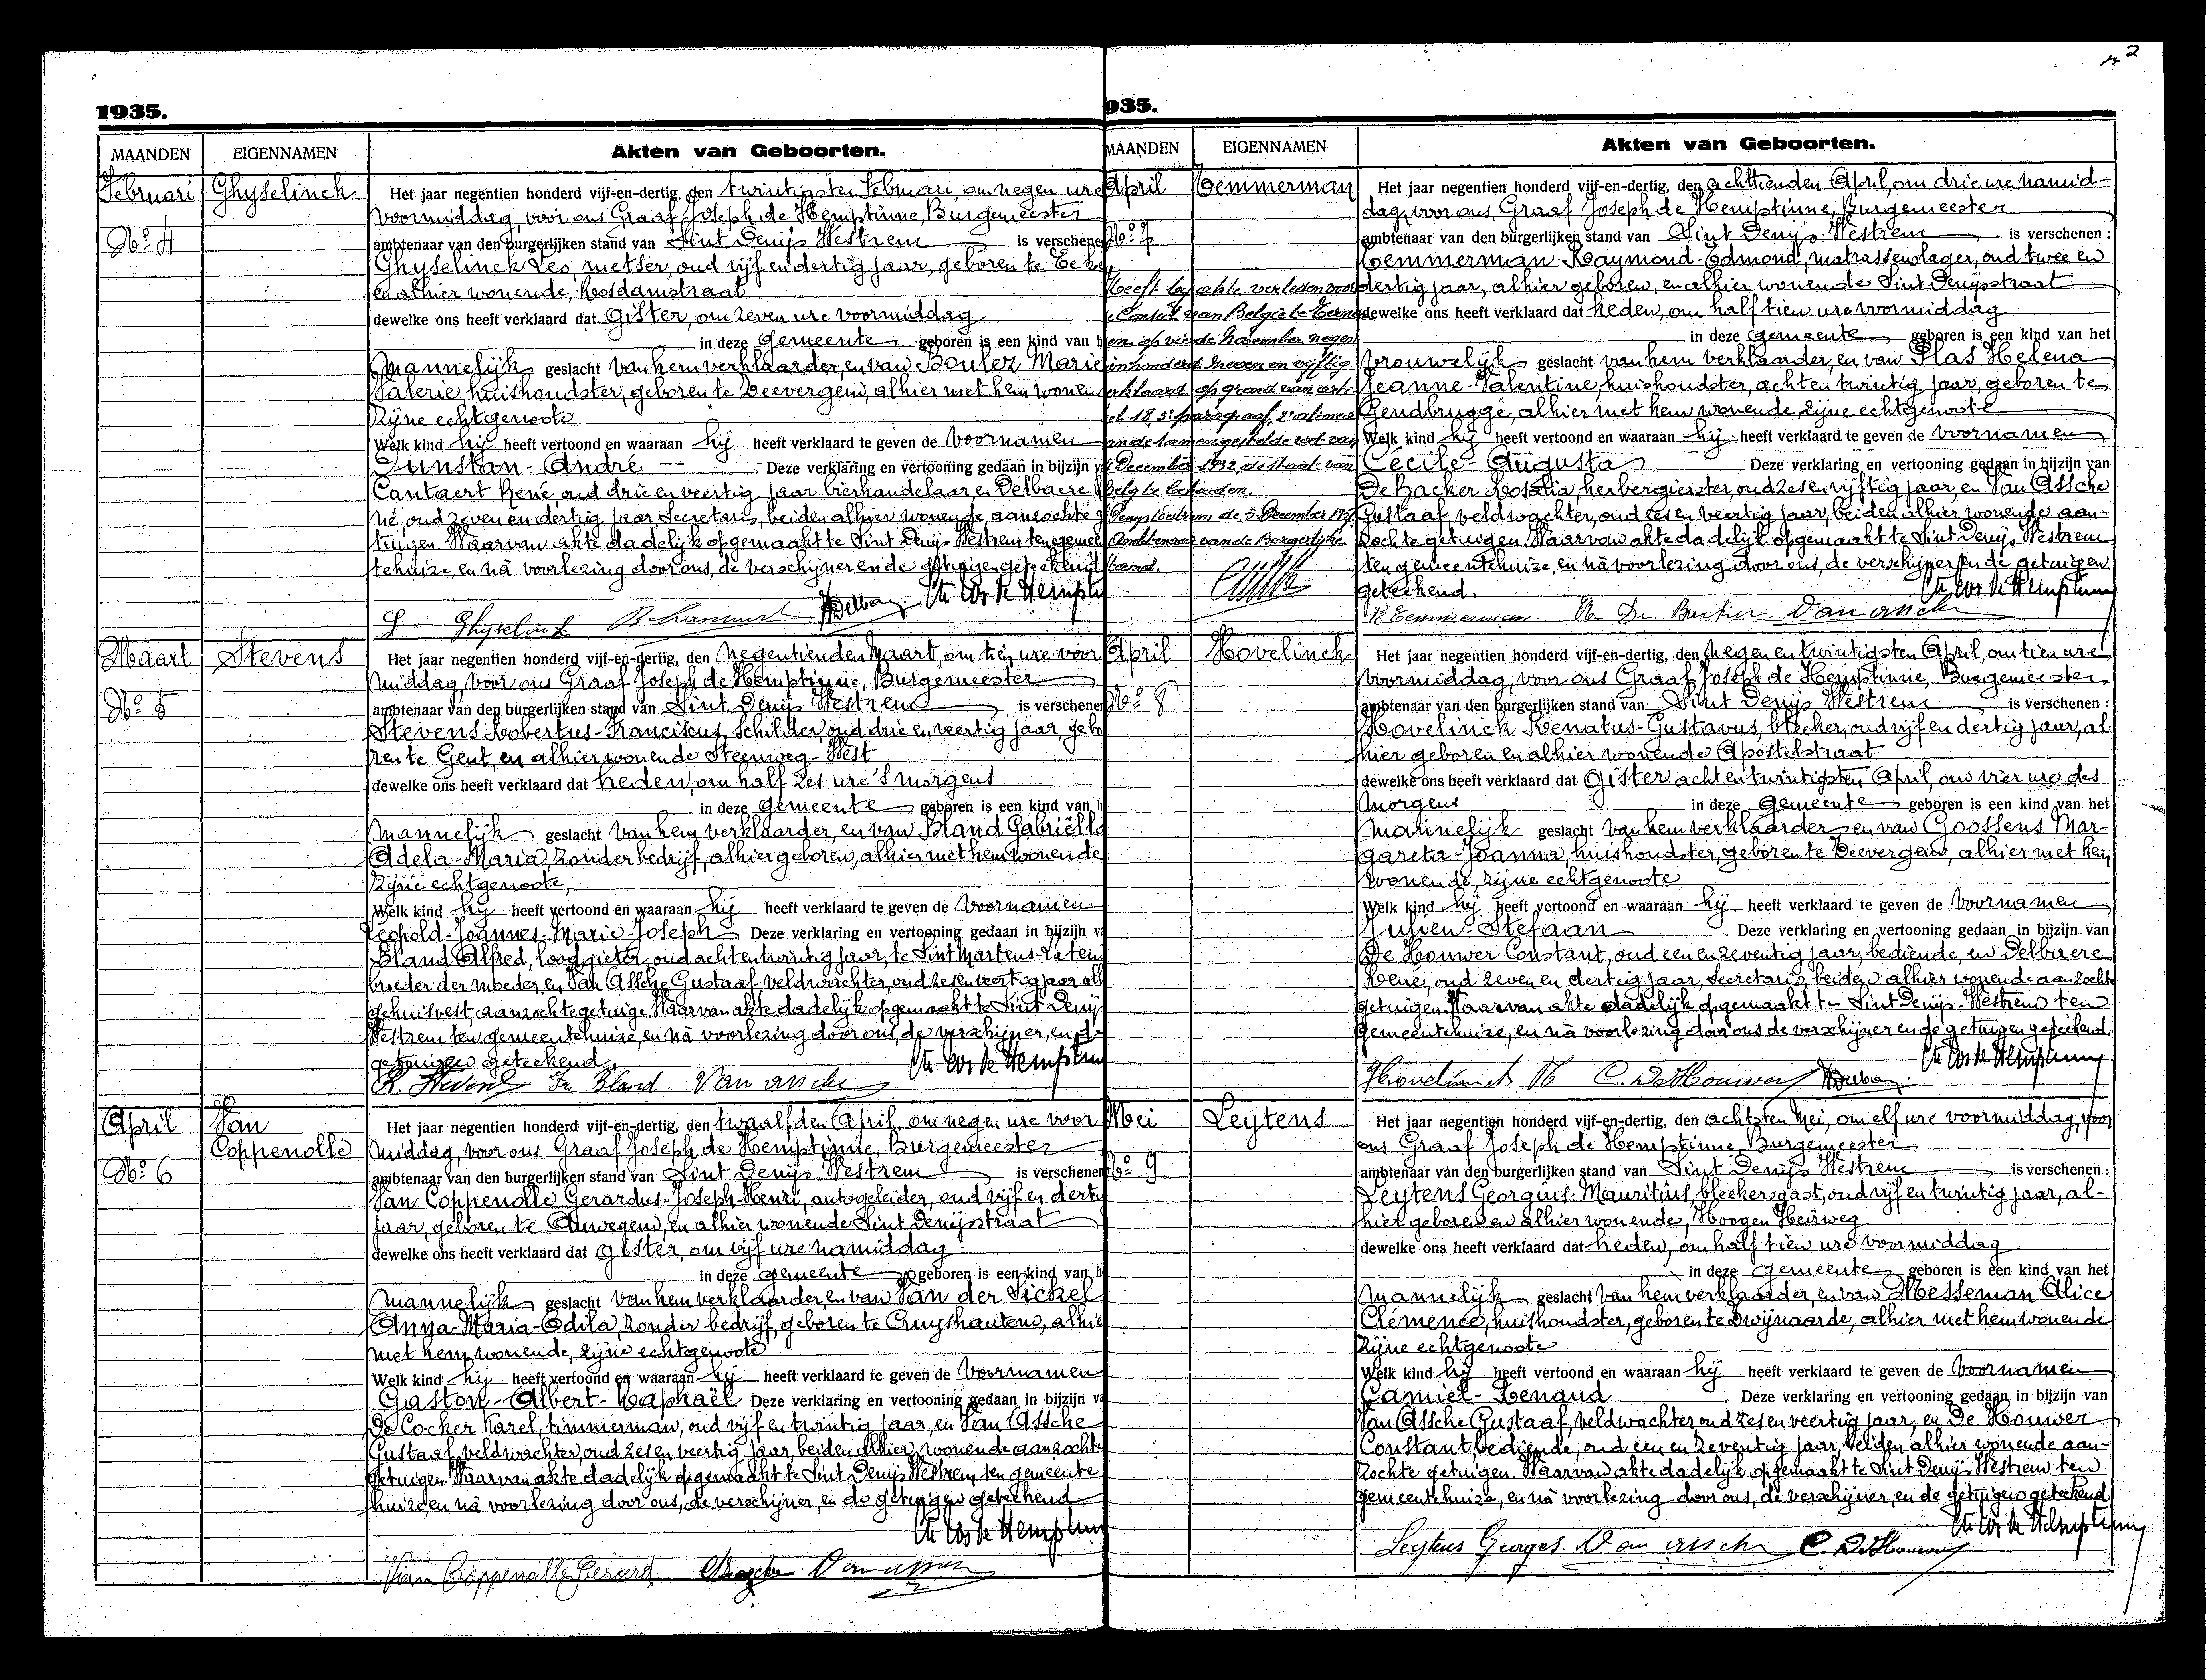 2
1935.
MAANDEN EIGENNAMEN Akten van Geboorten.
Februari Ghyselinck Het jaar negentien honderd vijf-en-dertig, den twintigsten Februari, om negen ure
voormiddag, voor ons Graaf Joseph de Hemptinne, Burgemeester
No. 4 ambtenaar van den burgerlijken stand van Sint Denijs Westrem is verschene
Ghyselinck Leo, metser, oud vijf en dertig jaar, geboren te Eeke
en alhier wonende, Rosdamstraat
dewelke ons heeft verklaard dat Gister, om zeven ure voormiddag
in deze Gemeente geboren is een kind van h
Mannelijk geslacht van hem verklaarder, en van Bouler Marie
Valerie, huishoudster, geboren te Zeevergem, alhier met hem wonen
Zijne echtgenoote
Welk kind hij heeft vertoond en waaraan hij heeft verklaard te geven de voornamen
Dunstan-André Deze verklaring en vertooning gedaan in bijzijn v
Cantaert René, oud drie en veertig jaar bierhandelaar en Delbaere
né, oud zeven en dertig jaar, Secretaris, beiden alhier wonende, aanzochte g
tuigen. Waarvan akte dadelijk opgemaakt te Sint Denijs Westrem ten gemee
tehuize, en nà voorlezing door ons, de verschijner en de getuigen geteekend
Ghyselinck Delbaere
Maart Stevens Het jaar negentien honderd vijf-en-dertig, den negentienden Maart, om tien ure voor
middag, voor ons Graaf Joseph de Hemptinne, Burgemeester
No. 5 ambtenaar van den burgerlijken stand van Sint Denijs Westrem is verschenen
Stevens Robertus-Franciscus, Schilder, oud drie en veertig jaar, gebo
ren te Gent, en alhier wonende Steenweg-West
dewelke ons heeft verklaard dat heden, om half zes ure 's morgens
in deze gemeente geboren is een kind van h
Mannelijk geslacht van hem verklaarder, en van Bland Gabriëlla
Adela-Maria, zonder bedrijf, alhier geboren, alhier met hem wonende
Zijne echtgenoote,
Welk kind hij heeft vertoond en waaraan hij heeft verklaard te geven de Voornamen
Leopold-Joannes-Marie-Joseph Deze verklaring en vertooning gedaan in bijzijn v
Bland Alfred, loodgieter, oud acht en twintig jaar, te Sint Martens-Latem
broeder der moeder, en Van Assche Gustaaf, veldwachter, oud zes en veertig jaar alh
gehuisvest, aanzochte getuige. Waarvan akte dadelijk opgemaakt te Sint Denijs
Westrem ten gemeentehuize, en nà voorlezing door ons, de verschijner, en de
getuigen geteekend.
R. Stevens Fr Bland Van assche
April Van Coppenolle Het jaar negentien honderd vijf-en-dertig, den twaalfden April, om negen ure voor
middag, voor ons Graaf Joseph de Hemptinne, Burgemeester
No. 6 ambtenaar van den burgerlijken stand van Sint Denijs Westrem is verschenen
Van Coppenolle Gerardus-Joseph-Henri, autogeleider, oud vijf en dertig
Jaar, geboren te Anvegem, en alhier wonende Sint Denijsstraat
dewelke ons heeft verklaard dat gister, om vijf ure namiddag
in deze gemeente geboren is een kind van h
Mannelijk geslacht van hem verklaarder, en van Van der Sickel
Anna-Maria-Odila, zonder bedrijf, geboren te Cruyshautem, alhier
met hem wonende, zijne echtgenoote
Welk kind hij heeft vertoond en waaraan hij heeft verklaard te geven de Voornamen
Gaston-Albert-Raphaël Deze verklaring en vertooning gedaan in bijzijn va
De Cocker Karel, timmerman, oud vijf en twintig jaar, en Van Assche
Gustaaf, veldwachter, oud zes en veertig jaar, beiden alhier, wonende aanzochte
getuigen. Waarvan akte dadelijk opgemaakt te Sint Denijs Westrem, ten gemeente
huize, en nà voorlezing door ons, de verschijner, en de getuigen geteekend
Van Coppenolle Gerard Van assche
935.
MAANDEN EIGENNAMEN Akten van Geboorten.
April Temmerman Het jaar negentien honderd vijf-en-dertig, den achttienden April, om drie ure namid-
dag, voor ons, Graaf Joseph de Hemptinne, Burgemeester
No. 7 ambtenaar van den burgerlijken stand van Sint Denijs-Westrem is verschenen :
Temmerman Raymond-Edmond, matrassenslager, oud twee en
dertig jaar, alhier geboren, en alhier wonende Sint Denijsstraat
dewelke ons heeft verklaard dat heden, om half tien ure voormiddag
in deze gemeente geboren is een kind van het
Vrouwelijk geslacht van hem verklaarder, en van Plas Helena
Jeanne-Valentine, huishoudster, acht en twintig jaar, geboren te
Gendbrugge, alhier met hem wonende, zijne echtgenoote
Welk kind hij heeft vertoond en waaraan hij heeft verklaard te geven de voornamen
Cécile-Augusta Deze verklaring en vertooning gedaan in bijzijn van
De Backer Rosalia, herbergierster, oud zes en vijftig jaar, en Van Assche
Gustaaf, veldwachter, oud zes en veertig jaar, beiden alhier wonende aan-
zochte getuigen. Waarvan akte dadelijk opgemaakt te Sint Denijs Westrem
ten gemeentehuize, en nà voorlezing door ons, de verschijner en de getuigen
geteekend.
R Temmerman R. De Backer Van assche
Heeft bij akte verleden voor
de Consul van België te
op vierde November negen
tienhonderd zeven en vijftig
verklaard op grond van arti-
kel 18, 3e paragraaf, 2e alinea
van de samengestelde wet van
14 December 1932, de staat van
Belg te behouden.
St Denijs Westrem, de 5 December 1957.
Ambtenaar van de Burgerlijke
stand.
April Hovelinck Het jaar negentien honderd vijf-en-dertig, den negen en twintigsten April, om tien ure
voormiddag, voor ons Graaf Joseph de Hemptinne, Burgemeester
No. 8 ambtenaar van den burgerlijken stand van Sint Denijs Westrem is verschenen :
Hovelinck Renatus-Gustavus, bleeker, oud vijf en dertig jaar, al-
hier geboren en alhier wonende Apostelstraat
dewelke ons heeft verklaard dat Gister acht en twintigsten April, om vier ure des
Morgens in deze gemeente geboren is een kind van het
Mannelijk geslacht van hem verklaarder, en van Goossens Mar-
gareta-Joanna, huishoudster, geboren te Zeevergem, alhier met hem
wonende, zijne echtgenoote
Welk kind hij heeft vertoond en waaraan hij heeft verklaard te geven de Voornamen
Julien-Stefaan Deze verklaring en vertooning gedaan in bijzijn van
De Houwer Constant, oud een en zeventig jaar, bediende, en Delbaere
René, oud zeven en dertig jaar, Secretaris, beiden alhier wonende aanzochte
getuigen. Waarvan akte dadelijk opgemaakt te Sint Denijs-Westrem ten
gemeentehuize, en nà voorlezing door ons de verschijner en de getuigen geteekend.
Hovelinck R C. De Houwer Delbaere
Mei Leytens Het jaar negentien honderd vijf-en-dertig, den achtsten Mei, om elf ure voormiddag, voor
ons Graaf Joseph de Hemptinne, Burgemeester
No. 9 ambtenaar van den burgerlijken stand van Sint Denijs Westrem is verschenen :
Leytens Georgius-Mauritius, bleekersgast, oud vijf en twintig jaar, al-
hier geboren en alhier wonende, Hoogen Heirweg
dewelke ons heeft verklaard dat heden, om half tien ure voormiddag
in deze Gemeente geboren is een kind van het
Mannelijk geslacht van hem verklaarder, en van Messeman Alice
Clémence, huishoudster, geboren te Zwijnaarde, alhier met hem wonende
Zijne echtgenoote
Welk kind hij heeft vertoond en waaraan hij heeft verklaard te geven de Voornamen
Camiel-Renaud Deze verklaring en vertooning gedaan in bijzijn van
Van Assche Gustaaf, veldwachter oud zes en veertig jaar, en De Houwer
Constant, bediende, oud een en zeventig jaar, beiden alhier wonende aan-
zochte getuigen. Waarvan akte dadelijk opgemaakt te Sint Denijs Westrem ten
gemeentehuize, en nà voorlezing door ons, de verschijner, en de getuigen geteekend
Leytens Georges. Van assche C. De Houwer